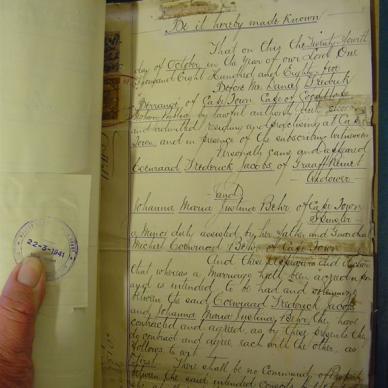 Be it hereby made Known
That on this the Twenty fourth
day of October in the Year of our Lord One
Thousand Eight Hundred and Eighty five
Before Me Daniel Frederik
of Cape Town Cape of Good Hope
Notary Public by lawful authority duly
and admitted residing and practising at Cape
Town and in presence of the subscribing witnesses
Personally came and appeared
Coenraad Frederick Jacobs of Graaff Reinet
Widower
and
Johanna Maria Behr of Cape Town
Spinster
a Minor duly assisted by her Father and Guardian
Michiel Coenraad Behr of Cape Town
And these Appearers did declare
that whereas a Marriage hath been agreed on
and is intended to be had and
between the said Coenraad Frederick Jacobs
and Johanna Maria Behr they have
contracted and agreed, as by these presents they
do contract and agree each with the other, as
follows to wit
First. There shall be no Community of Property
between the said intended Consorts
22-3-1941